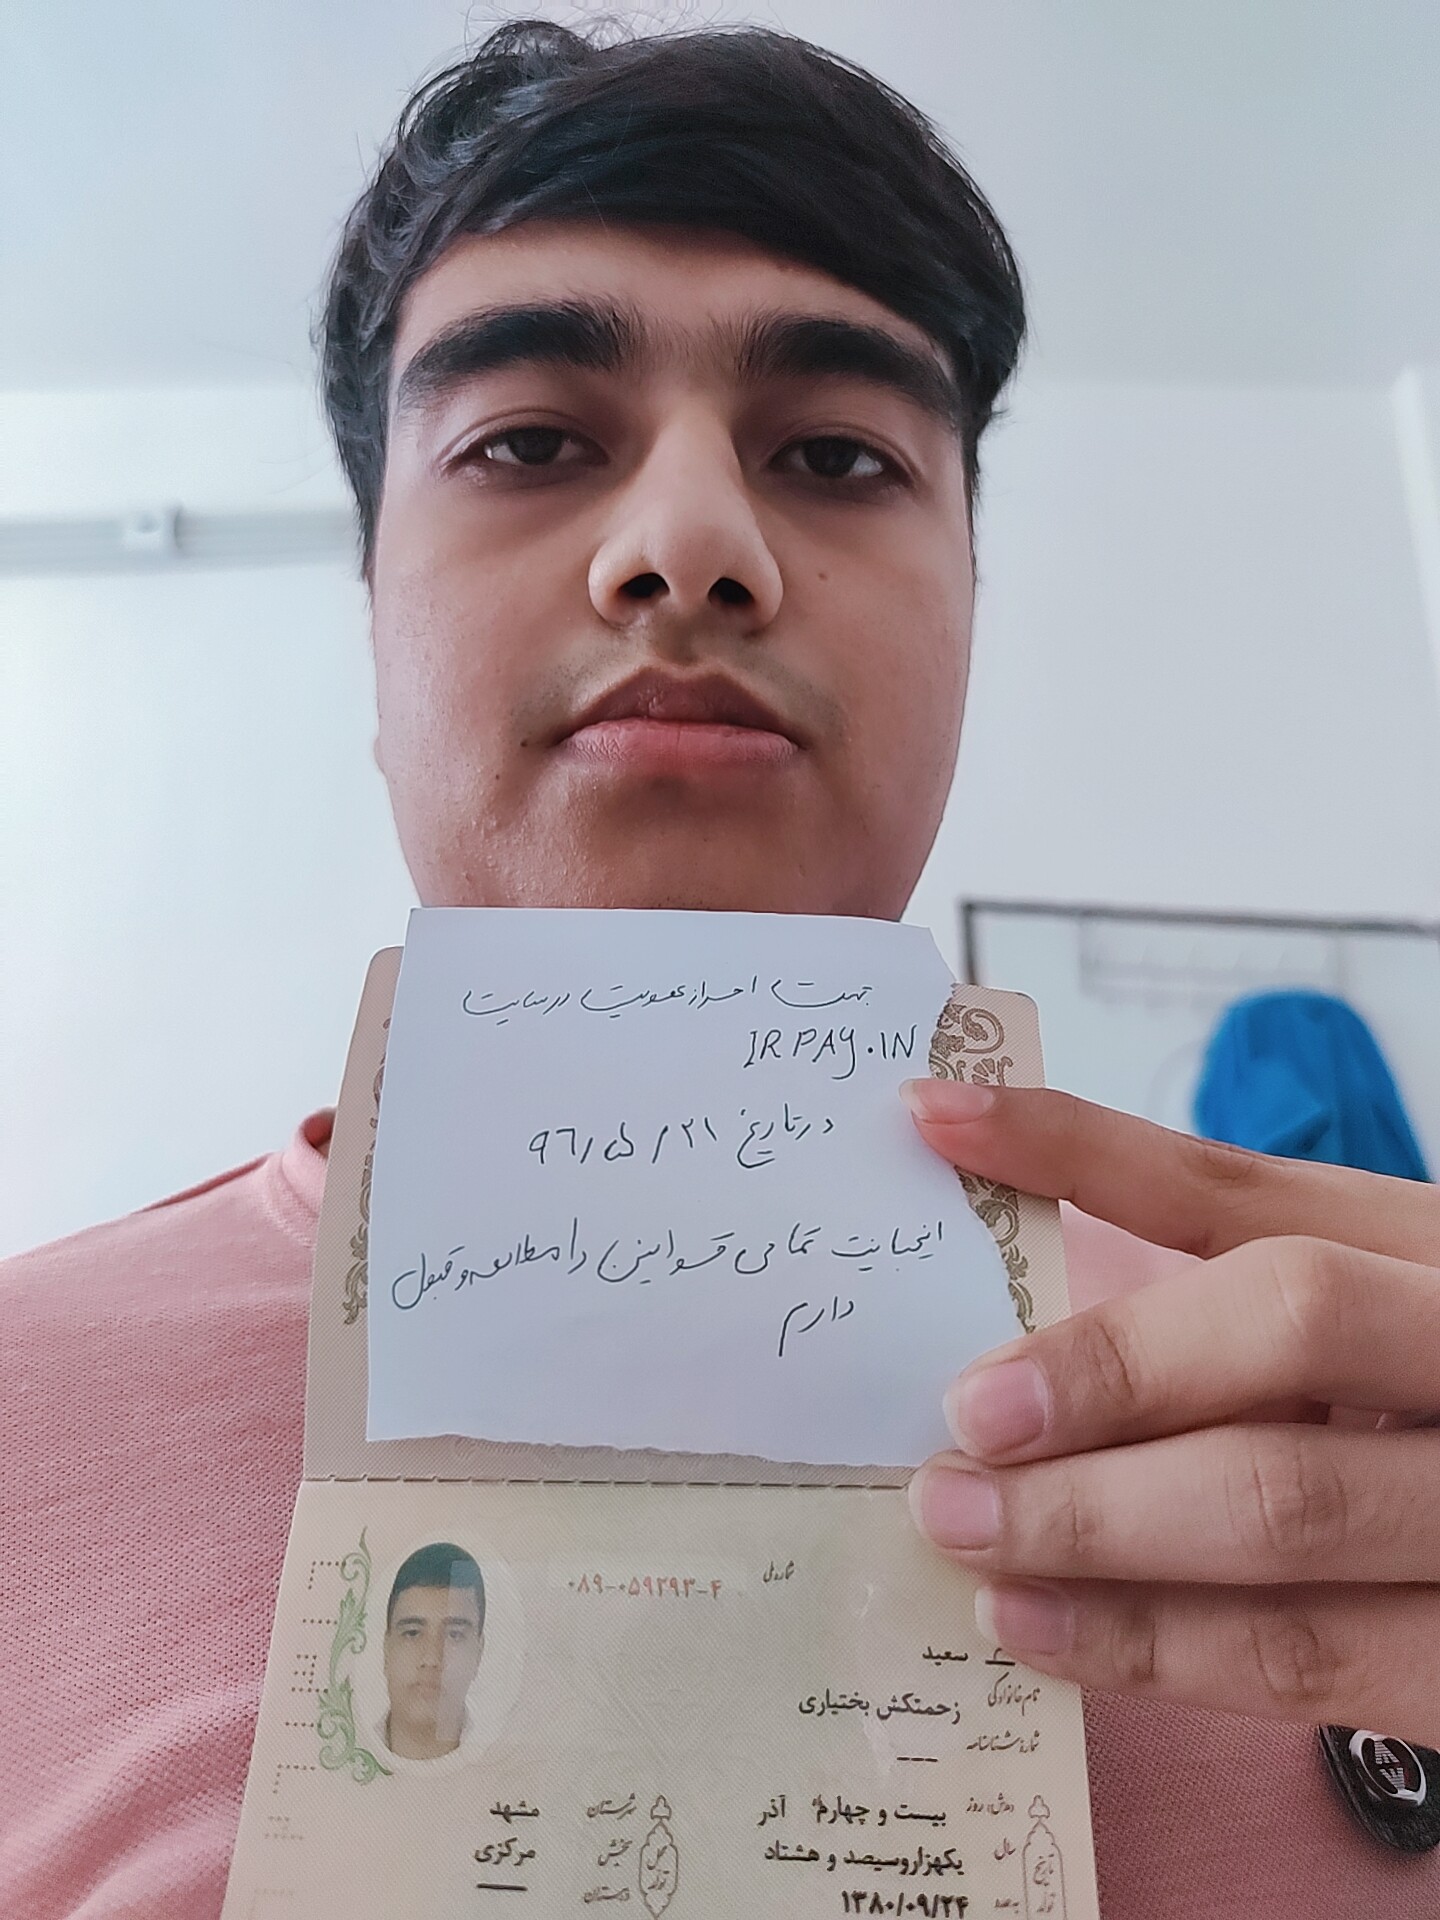 جهت احراز عضویت در سایت
IRPAY.IN
در تاریخ ۲۱/۵/۹۶
اینجانب تمامی قوانین را مطالعه و قبول
دارم
شماره ملی ۰۸۹-۰۵۹۲۹۳-۴
سعید
نام خانوادگی زحمتکش بختیاری
شماره شناسنامه ---
روز بیست و چهارم آذر
سال یکهزار و سیصد و هشتاد
تاریخ تولد ۱۳۸۰/۰۹/۲۴
شهرستان مشهد
بخش مرکزی
دهستان —
محل تولد